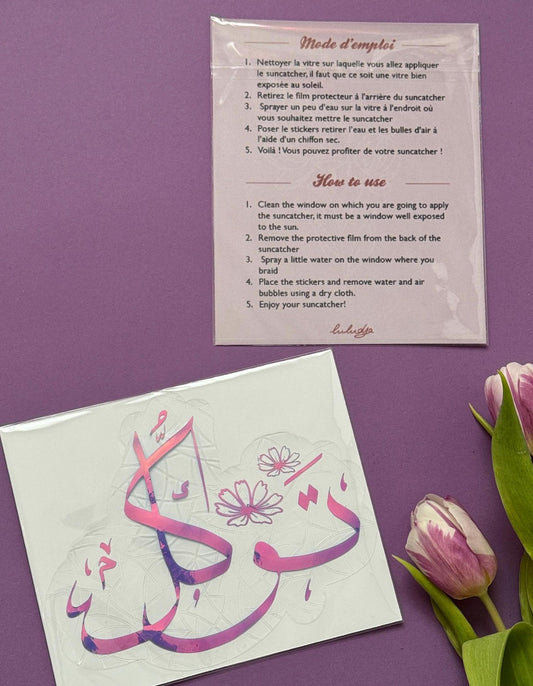 Mode d'emploi
1. Nettoyer la vitre sur laquelle vous allez appliquer
le suncatcher, il faut que ce soit une vitre bien
exposée au soleil.
2. Retirez le film protecteur à l'arrière du suncatcher
3. Sprayer un peu d'eau sur la vitre à l'endroit où
vous souhaitez mettre le suncatcher
4. Poser le stickers retirer l'eau et les bulles d'air à
l'aide d'un chiffon sec.
5. Voilà ! Vous pouvez profiter de votre suncatcher !
How to use
1. Clean the window on which you are going to apply
the suncatcher, it must be a window well exposed
to the sun.
2. Remove the protective film from the back of the
suncatcher
3. Spray a little water on the window where you
braid
4. Place the stickers and remove water and air
bubbles using a dry cloth.
5. Enjoy your suncatcher!
luludya
توكل